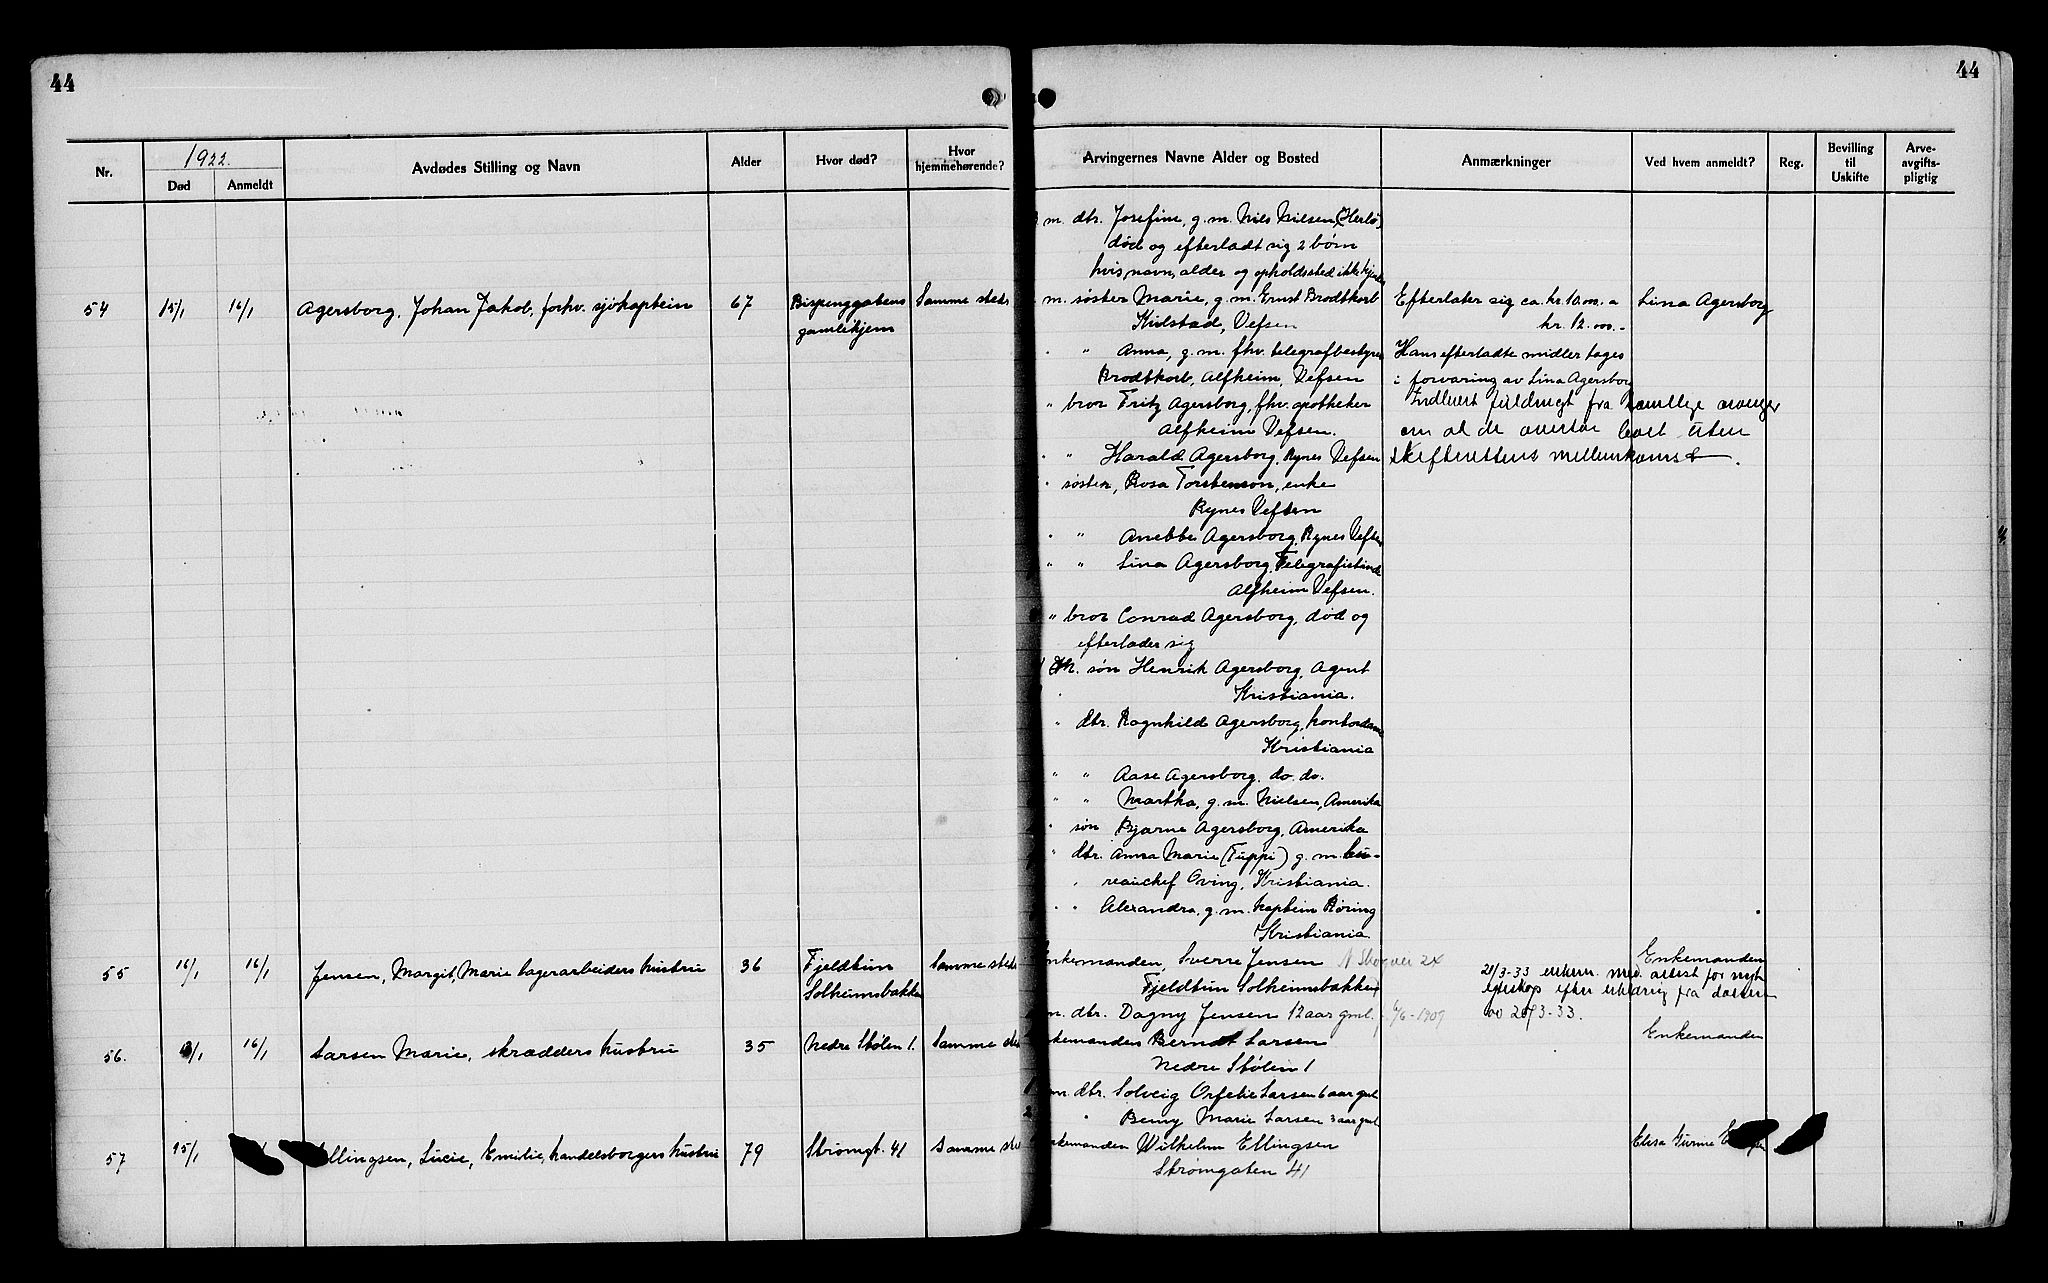 44
44
1922.
Nr.
Død
Anmeldt
Avdødes Stilling og Navn
Alder
Hvor død?
Hvor hjemmehørende?
Arvingernes Navne Alder og Bosted
Anmærkninger
Ved hvem anmeldt?
Reg.
Bevilling til Uskifte
Arve-avgifts-pligtig
m. dtr. Josefine, g. m. Nils Nilsen, Herlø,
død og efterladt sig 2 børn
hvis navn, alder og opholdssted ikke
54 15/1 16/1 Agersborg, Johan Jakob, forhv. sjökaptein 67 Bispenggatens Samme sted m. søster Marie, g. m. Ernst Brodtkorb Efterlater sig ca. kr. 10.000.- a Lina Agersborg
gamlehjem Kulstad, Vefsen kr. 12.000.-
" Anna, g. m. fhv. telegrafbestyrer Hans efterladte midler tages
Brodtkorb, Alfheim, Vefsen i forvaring av Lina Agersborg
" bror Fritz Agersborg, fhv. apotheker Indlevert fuldmagt fra samtlige arvinger
Alfheim Vefsen. om at de overtar boet uten
" " Harald Agersborg, Rynes Vefsen skifterettens mellemkomst.
" søster, Rosa Torstenson, enke
Rynes Vefsen
" " Anebbe Agersborg, Rynes Vefsen
" " Lina Agersborg, Telegrafistinde
Alfheim Vefsen.
" bror Conrad Agersborg, død og
efterlader sig
M. søn Henrik Agersborg, Agent
Kristiania.
" dtr. Ragnhild Agersborg, kontordame
Kristiania
" " Aase Agersborg. do. do.
" " Martha, g. m. Nielsen, Amerika
" søn Bjarne Agersborg, Amerika
" dtr. Anna Marie (Tuppi) g. m. bu-
reauchef Oving, Kristiania.
" " Alexandra, g. m. kaptein Röring
Kristiania
55 16/1 16/1 Jensen, Margit, Marie lagerarbeiders hustru 36 Fjeldtun Samme sted Enkemanden, Sverre Jensen Enkemanden
Solheimsbakken Fjeldtun Solheimsbakken 21/3-33 med attest for nyt
m. dtr. Dagny Jensen 12 aar gml. 6/6-1909 3-33.
56. 16/1 Larsen Marie, skrædders hustru 35 Nedre Stølen 1. Samme sted Enkemanden Berndt Larsen Enkemanden
Nedre Stölen 1
1 m. dtr. Solveig Orfelie Larsen 6 aar gml
2 " Beny Marie Larsen 3 aar gml
57 15/1 Ellingsen, Lucie, Emilie, handelsborgers hustru 79 Strömgt. 41 Samme sted Enkemanden Wilhelm Ellingsen Elisa Gurine
Strömgaten 41